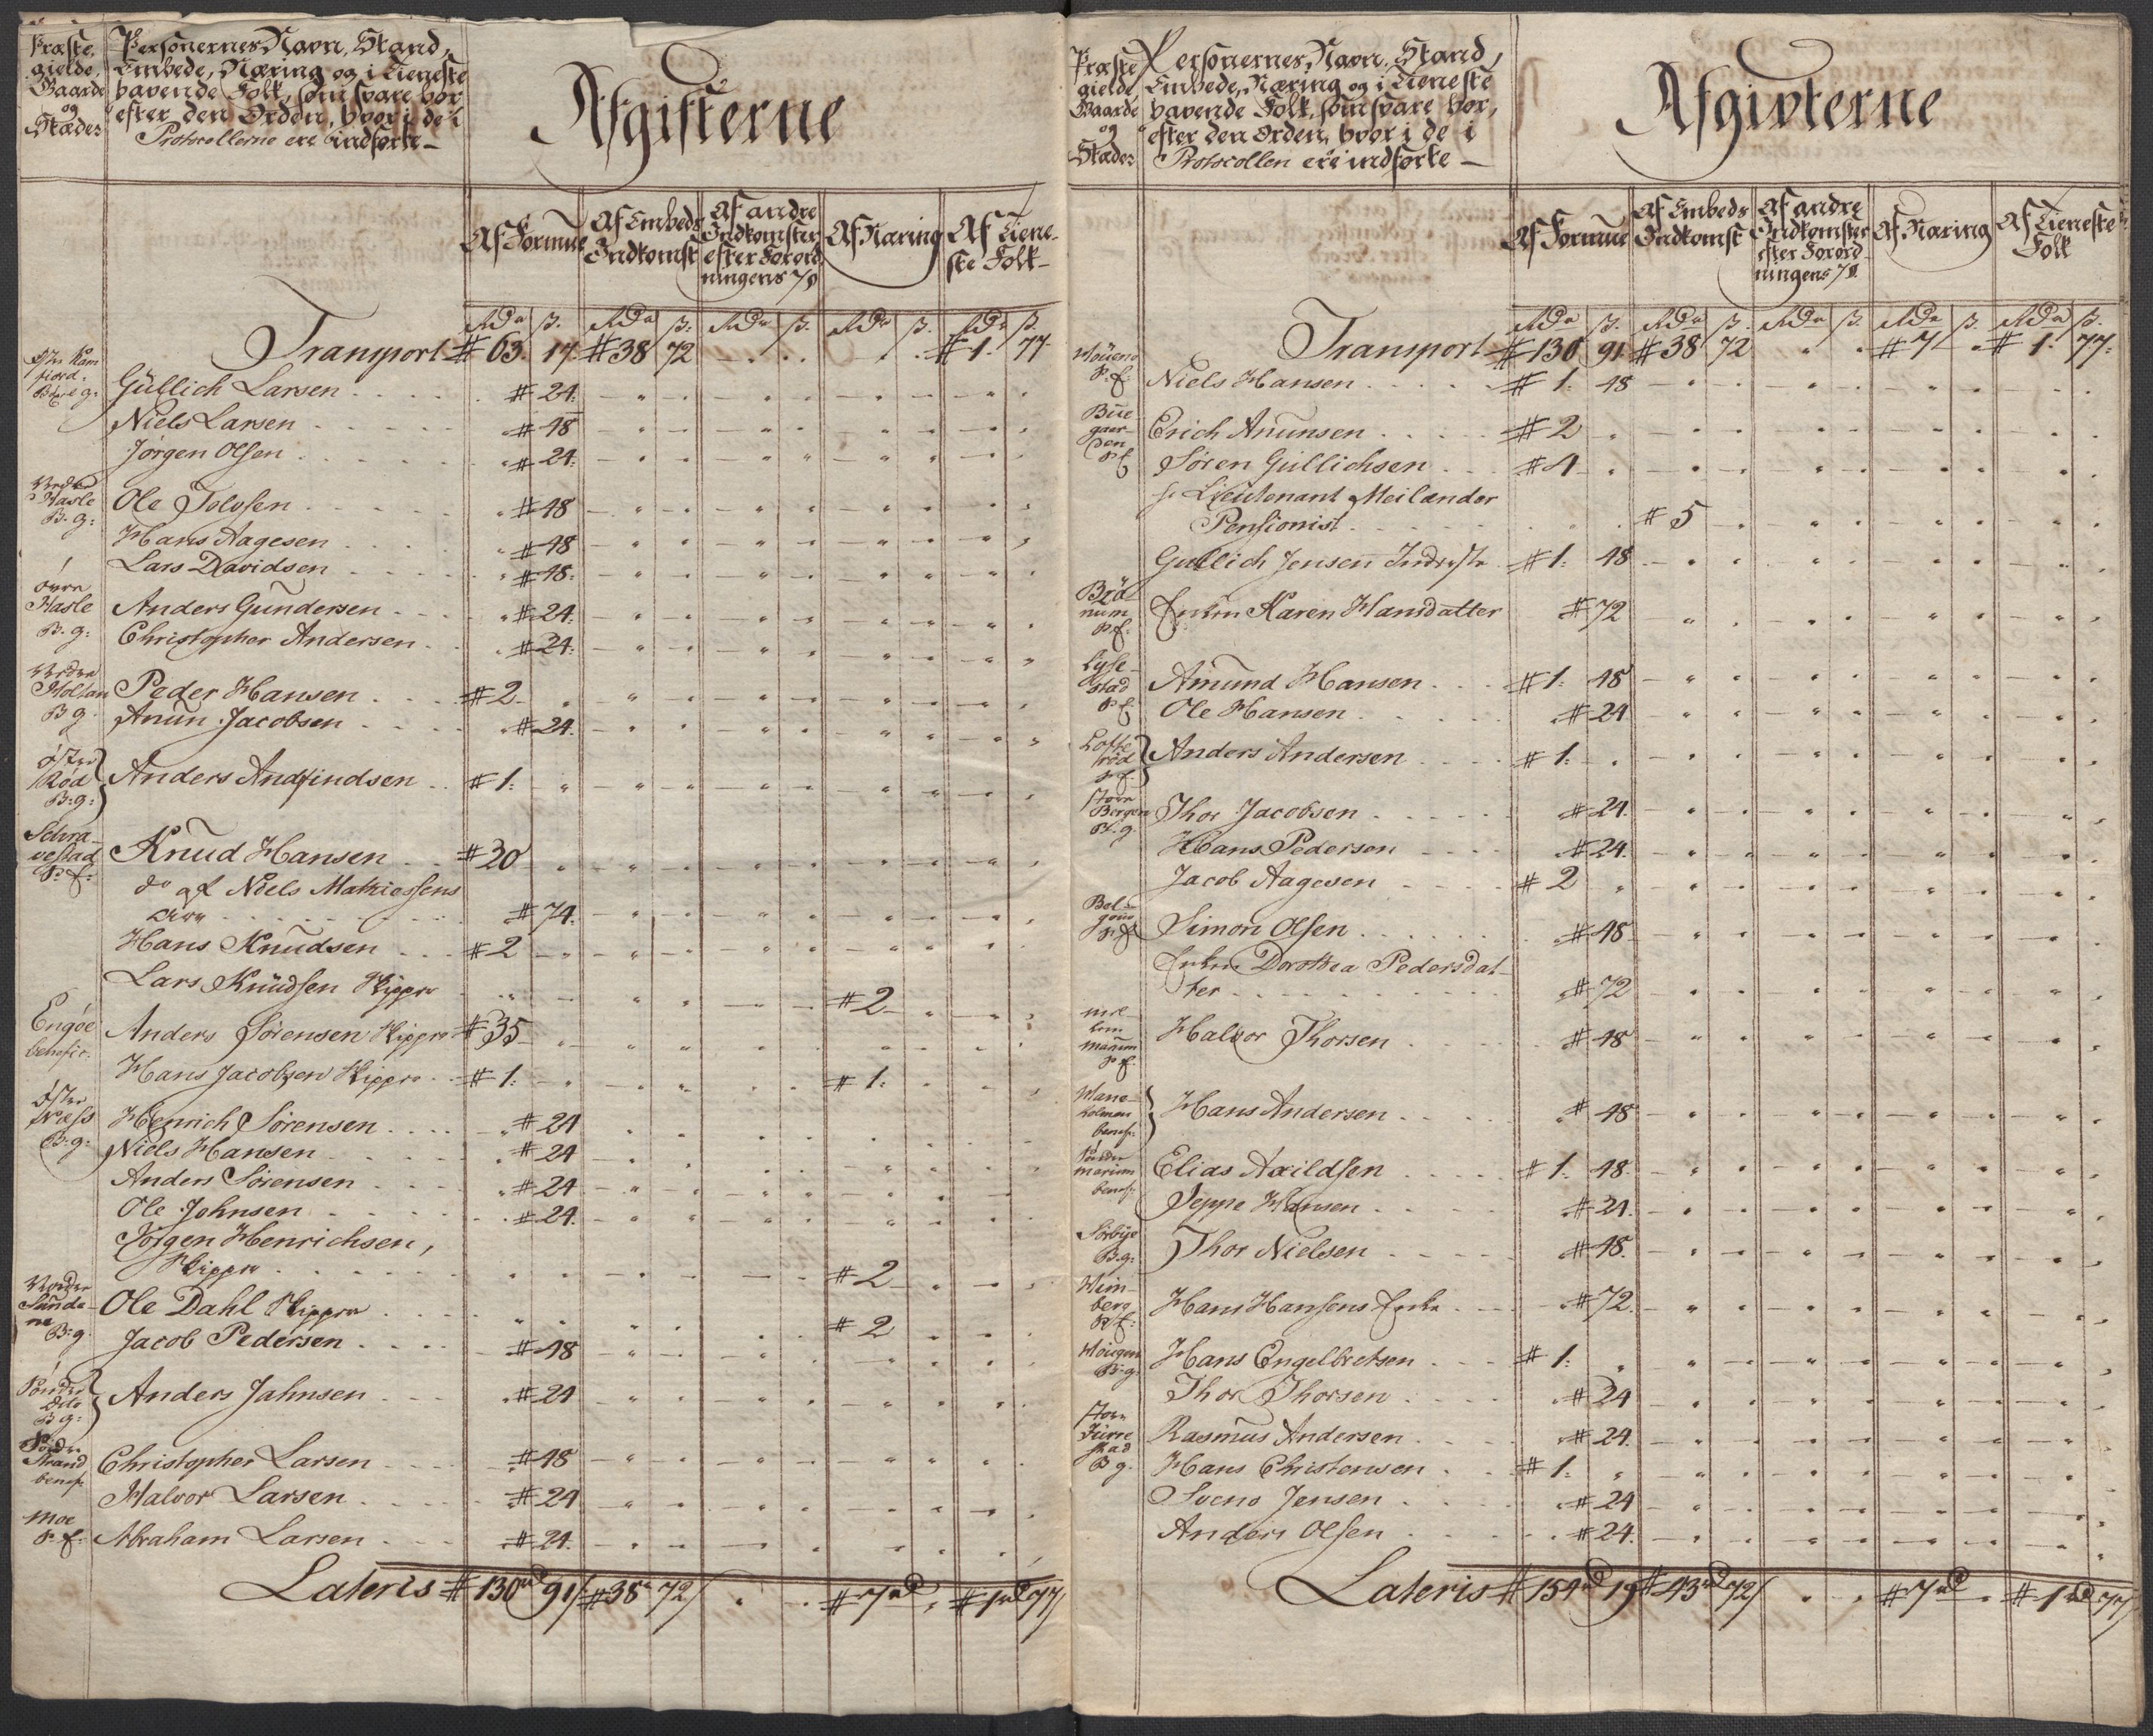 Præste
gield,
Gaarde
og
Stæder
Personernes Navn, Stand,
Embede, Næring og i Tieneste
havende Folk, som svare hor
efter den Orden, hvor i de i
Protocollerne ere indførte —
Afgifterne
Af Formue
Af Embeds Indkomst
Af andre Indkomster efter Forordningens 7 §
Af Næring
Af Tieneste Folk
Rdr ß. Rdr ß: Rdr ß. Rdr ß. Rdr ß.
Transport # 63. 17. # 38 72 # 1. 77
Gullich Larsen # 24.
Niels Larsen # 48
Jørgen Olsen # 24.
Hasle
B. g:
Ole Tolvsen # 48
Hans Aagesen # 48
Lars Davidsen # 48.
øvre
Hasle
B. g:
Anders Gundersen # 24.
Christopher Andersen # 24.
Holtan
B g.
Peder Hansen # 2
Anun Jacobsen # 24.
øster
Rød
B: g:
Anders Andfindsen # 1.
P. f:
Knud Hansen # 20
do af Niels Mathiessens
Arv # 74.
Hans Knudsen # 2
Lars Knudsen Skipper # 2
Engøe
benefic:
Anders Sørensen Skipper # 35
Hans Jacobsen Skipper # 1. # 1.
øster
Næss
B: g:
Henrich Sørensen # 24
Niels Hansen # 24
Anders Sørensen # 24
Ole Johnsen # 24.
Jørgen Henrichsen,
Skipper # 2
Sunde
ne
B: g.
Ole Dahl Skipper # 2
Jacob Pedersen # 48
B g:
Anders Jahnsen # 24
Strand
benef:
Christopher Larsen # 48
Halvor Larsen # 24
Moe
P. f:
Abraham Larsen # 24.
Lateris # 130rd 91/ # 38 72/ # 7rd # 1rd 77/
Præste
gield
Gaarde
og
Stæder
Personernes Navn, Stand,
Embede, Næring og i Tieneste
havende Folk, som svare hor,
efter den Orden, hvor i de i
Protocollen ere indførte —
Afgivterne
Af Formue
Af Embeds Indkomst
Af andre Indkomster efter Forordningens 7 §
Af Næring
Af Tieneste Folk
Rdr ß. Rdr ß. Rdr ß. Rdr ß. Rdr ß.
Transport # 130 91 # 38 72 # 7 # 1. 77.
P. f:
Niels Hansen # 1. 48
Erich Anunsen # 2
Søren Gullichsen # 4
Hr Lieutenant Meilander
Pensionist # 5
Gullich Jensen # 1. 48
P f:
Enken Karen Hansdatter # 72
Lyse
stad
P f
Amund Hansen # 1. 48
Ole Hansen # 24
P. f:
Anders Andersen # 1.
Store
Bergen
B. g.
Thor Jacobsen # 24.
Hans Pedersen # 24.
Jacob Aagesen # 2
Simon Olsen # 48
Enken Dorothea Pedersdat
ter # 72
P f:
Halvor Thorsen # 48
holmen
benef:
Hans Andersen # 48
benef:
Elias Axildsen # 1. 48.
Jeppe Hansen # 24.
Sørbye
B.g:
Thor Nielsen # 48.
berg
P f:
Hans Hansens Enke # 72
B: g.
Hans Engelbretsen # 1.
Thor Thorsen # 24
Store
stad
B g.
Rasmus Andersen # 24.
Hans Christensen # 1.
Svend Jensen # 24
Anders Olsen # 24.
Lateris # 154rd 19 # 43rd 72/ # 7rd # 1rd 77/